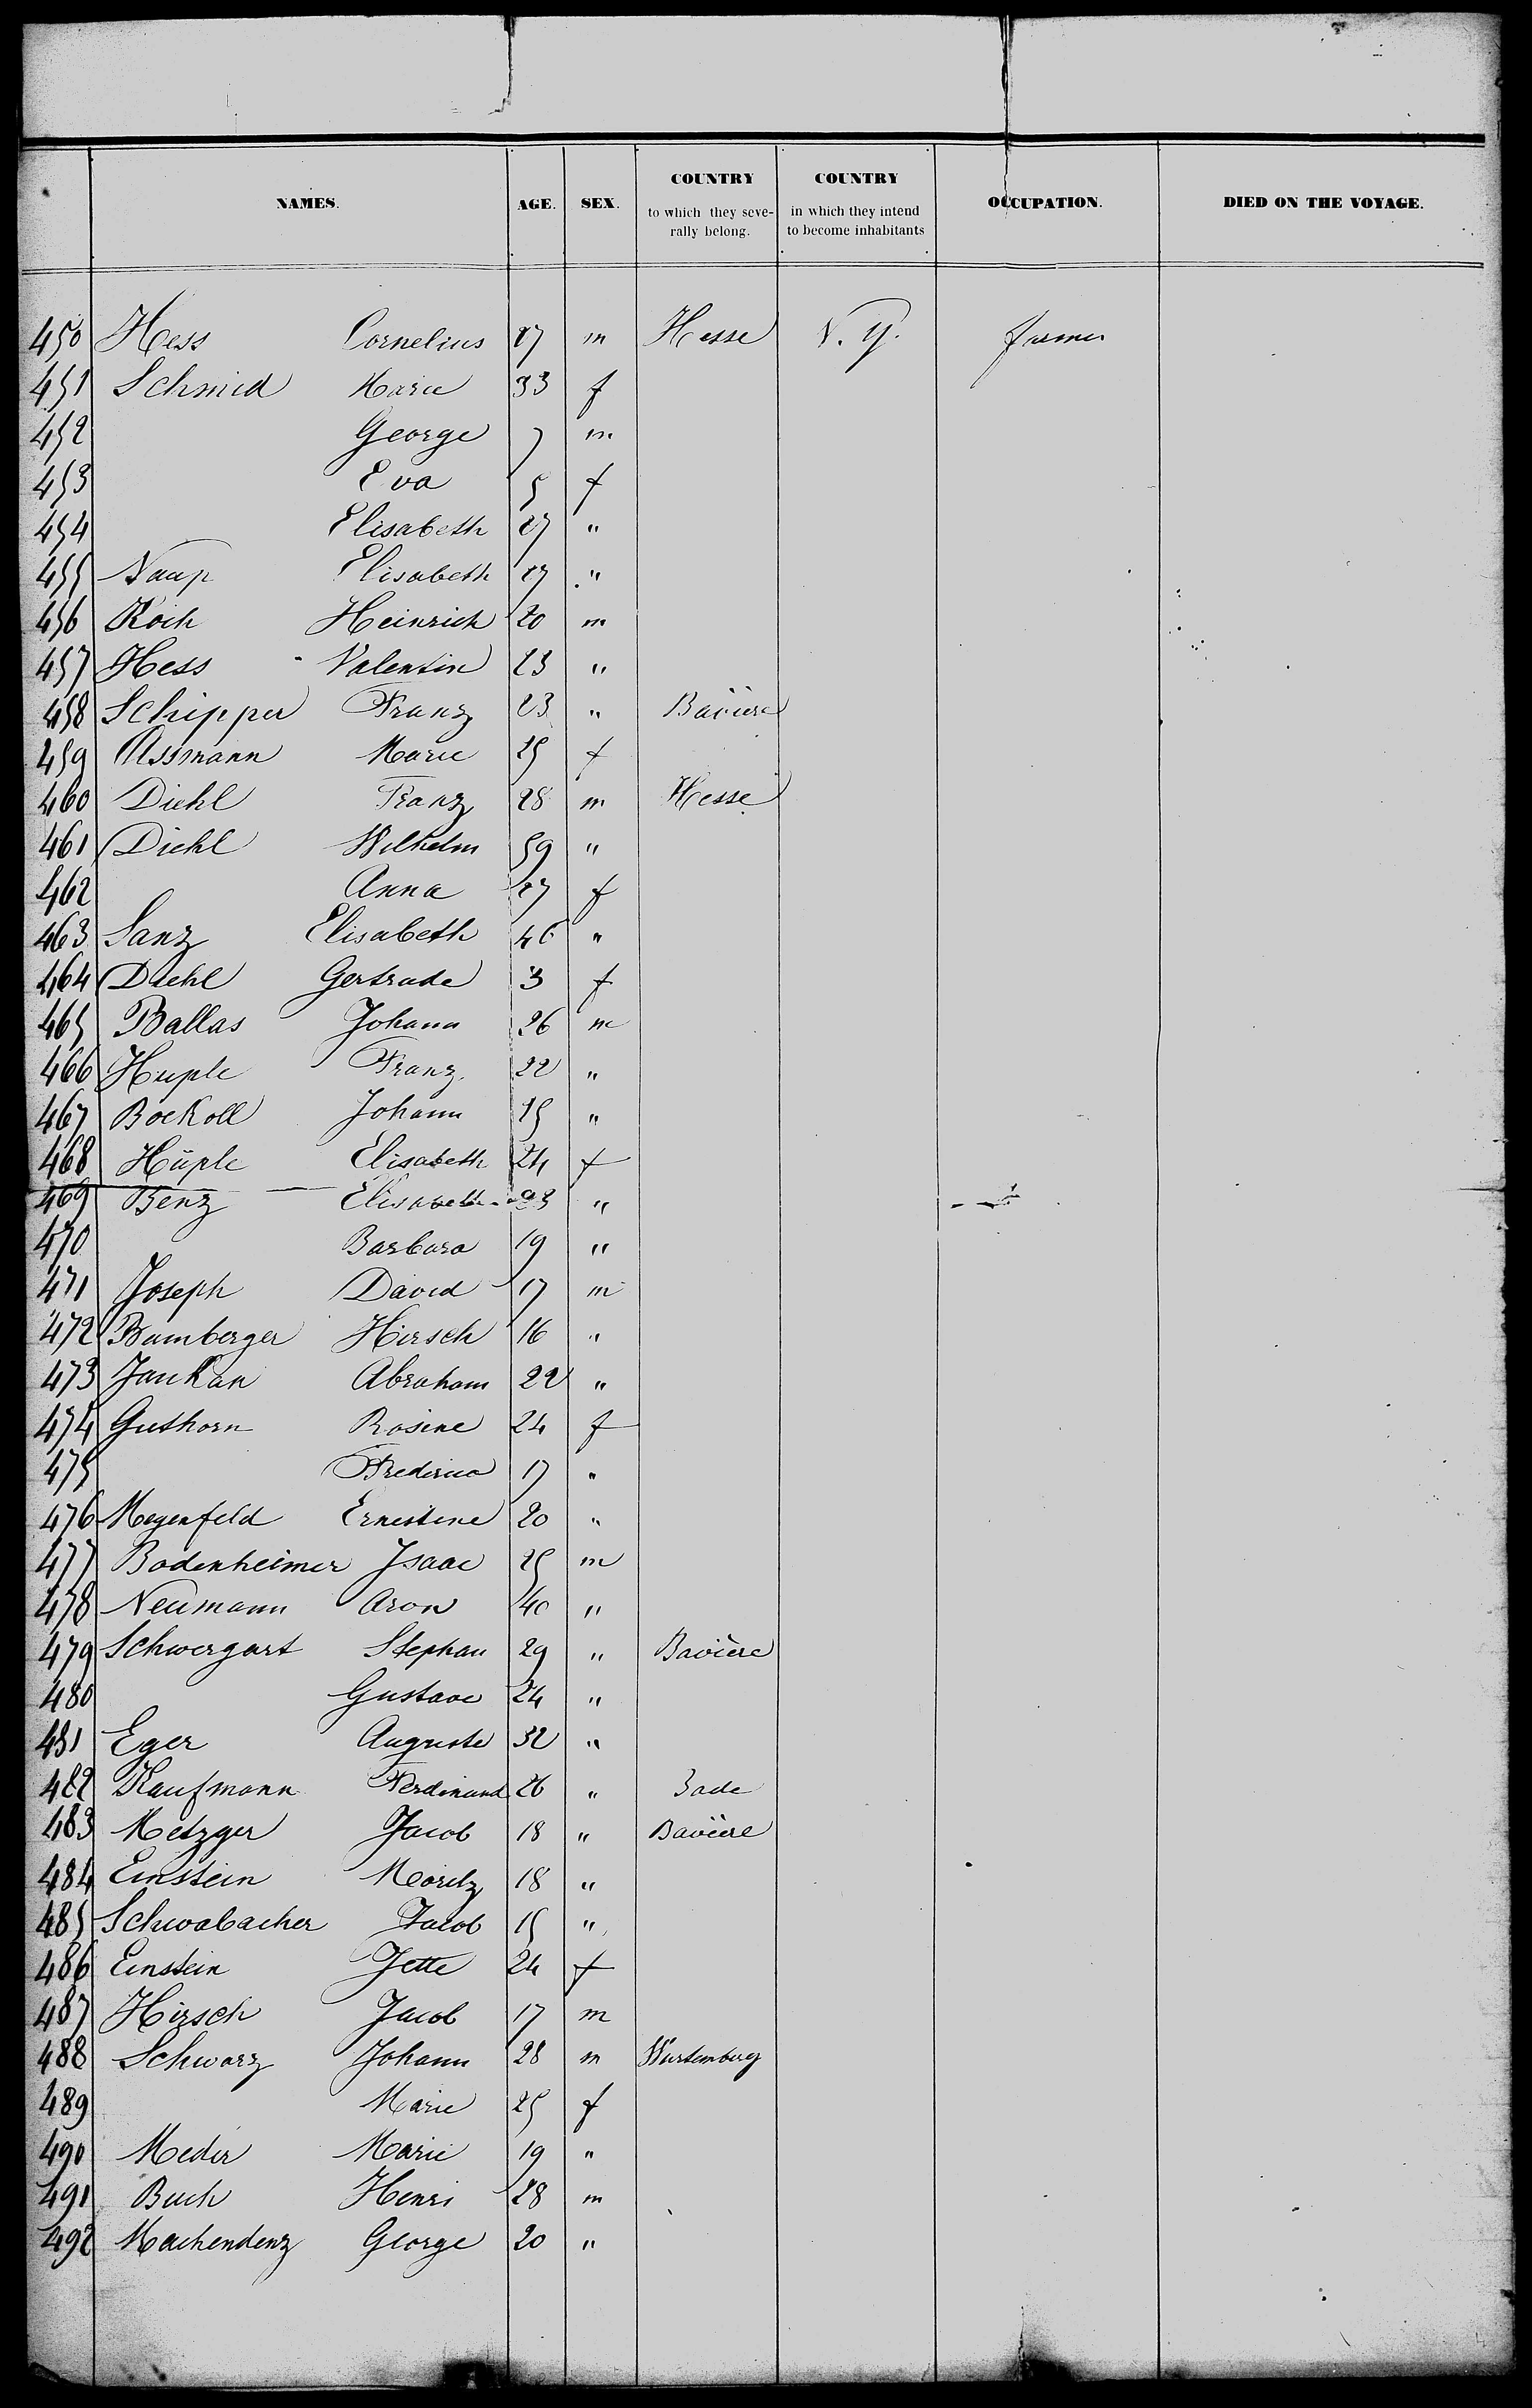 NAMES. AGE. SEX. COUNTRY to which they seve-rally belong. COUNTRY in which they intend to become inhabitants OCCUPATION. DIED ON THE VOYAGE.
450 Hess Cornelius 27 m Hesse N. Y. farmer
451 Schmid Marie 33 f
452 George 7 m
453 Eva 5 f
454 Elisabeth 27 "
455 Naup Elisabeth 27 "
456 Koch Heinrich 20 m
457 Hess Valentin 23 "
458 Schipper Franz 23 " Bavière
459 Assmann Marie 25 f
460 Diehl Franz 28 m Hesse
461 Diehl Wilhelm 59 "
462 Anna 27 f
463 Sanz Elisabeth 46 "
464 Diehl Gertrude 3 f
465 Ballas Johann 26 m
466 Huple Franz 22 "
467 Bockoll Johann 25 "
468 Hüple Elisabeth 24 f
469 Benz Elisabeth 23 "
470 Barbara 19 "
471 Joseph David 17 m
472 Bamberger Hirsch 16 "
473 Jankan Abraham 22 "
474 Guthorn Rosine 24 f
475 Frederica 17 "
476 Megenfeld Ernestine 20 "
477 Bodenheimer Isaac 25 m
478 Neumann Aron 40 "
479 Schwergart Stephan 29 " Bavière
480 Gustave 24 "
481 Eger Auguste 32 "
482 Kaufmann Ferdinand 26 " Bade
483 Metzger Jacob 18 " Bavière
484 Einstein Moritz 18 "
485 Schwabacher Jacob 15 "
486 Einstein Jette 24 f
487 Hirsch Jacob 17 m
488 Schwarz Johann 28 m Würtemberg
489 Marie 25 f
490 Meder Marie 19 "
491 Buch Henri 28 m
492 Machendenz George 20 "